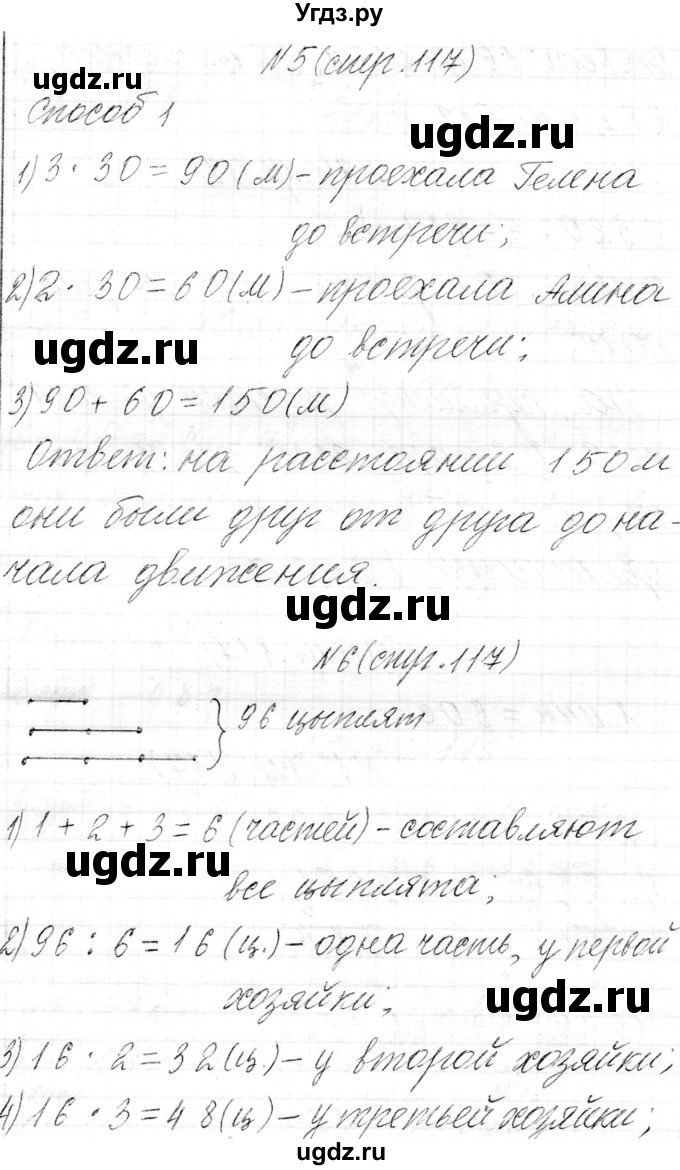 Угдз.ру
№5 (стр. 117)
ugdz.ru
Способ 1
ugdz.ru
1) 3 · 30 = 90 (м) - проехала Гелена
до встречи;
2) 2 · 30 = 60 (м) - проехала Алина
ugdz.ru до встречи;
3) 90 + 60 = 150 (м)
Ответ: на расстоянии 150 м
они были друг от друга до на-
чала движения.
ugdz.ru
№6 (стр. 117)
96 цыплят
1) 1 + 2 + 3 = 6 (частей) - составляют
ugdz.ru
все цыплята;
2) 96 : 6 = 16 (ц.) - одна часть, у первой
хозяйки;
ugdz.ru
3) 16 · 2 = 32 (ц.) - у второй хозяйки;
4) 16 · 3 = 48 (ц) - у третьей хозяйки;
ugdz.ru
ugdz.ru